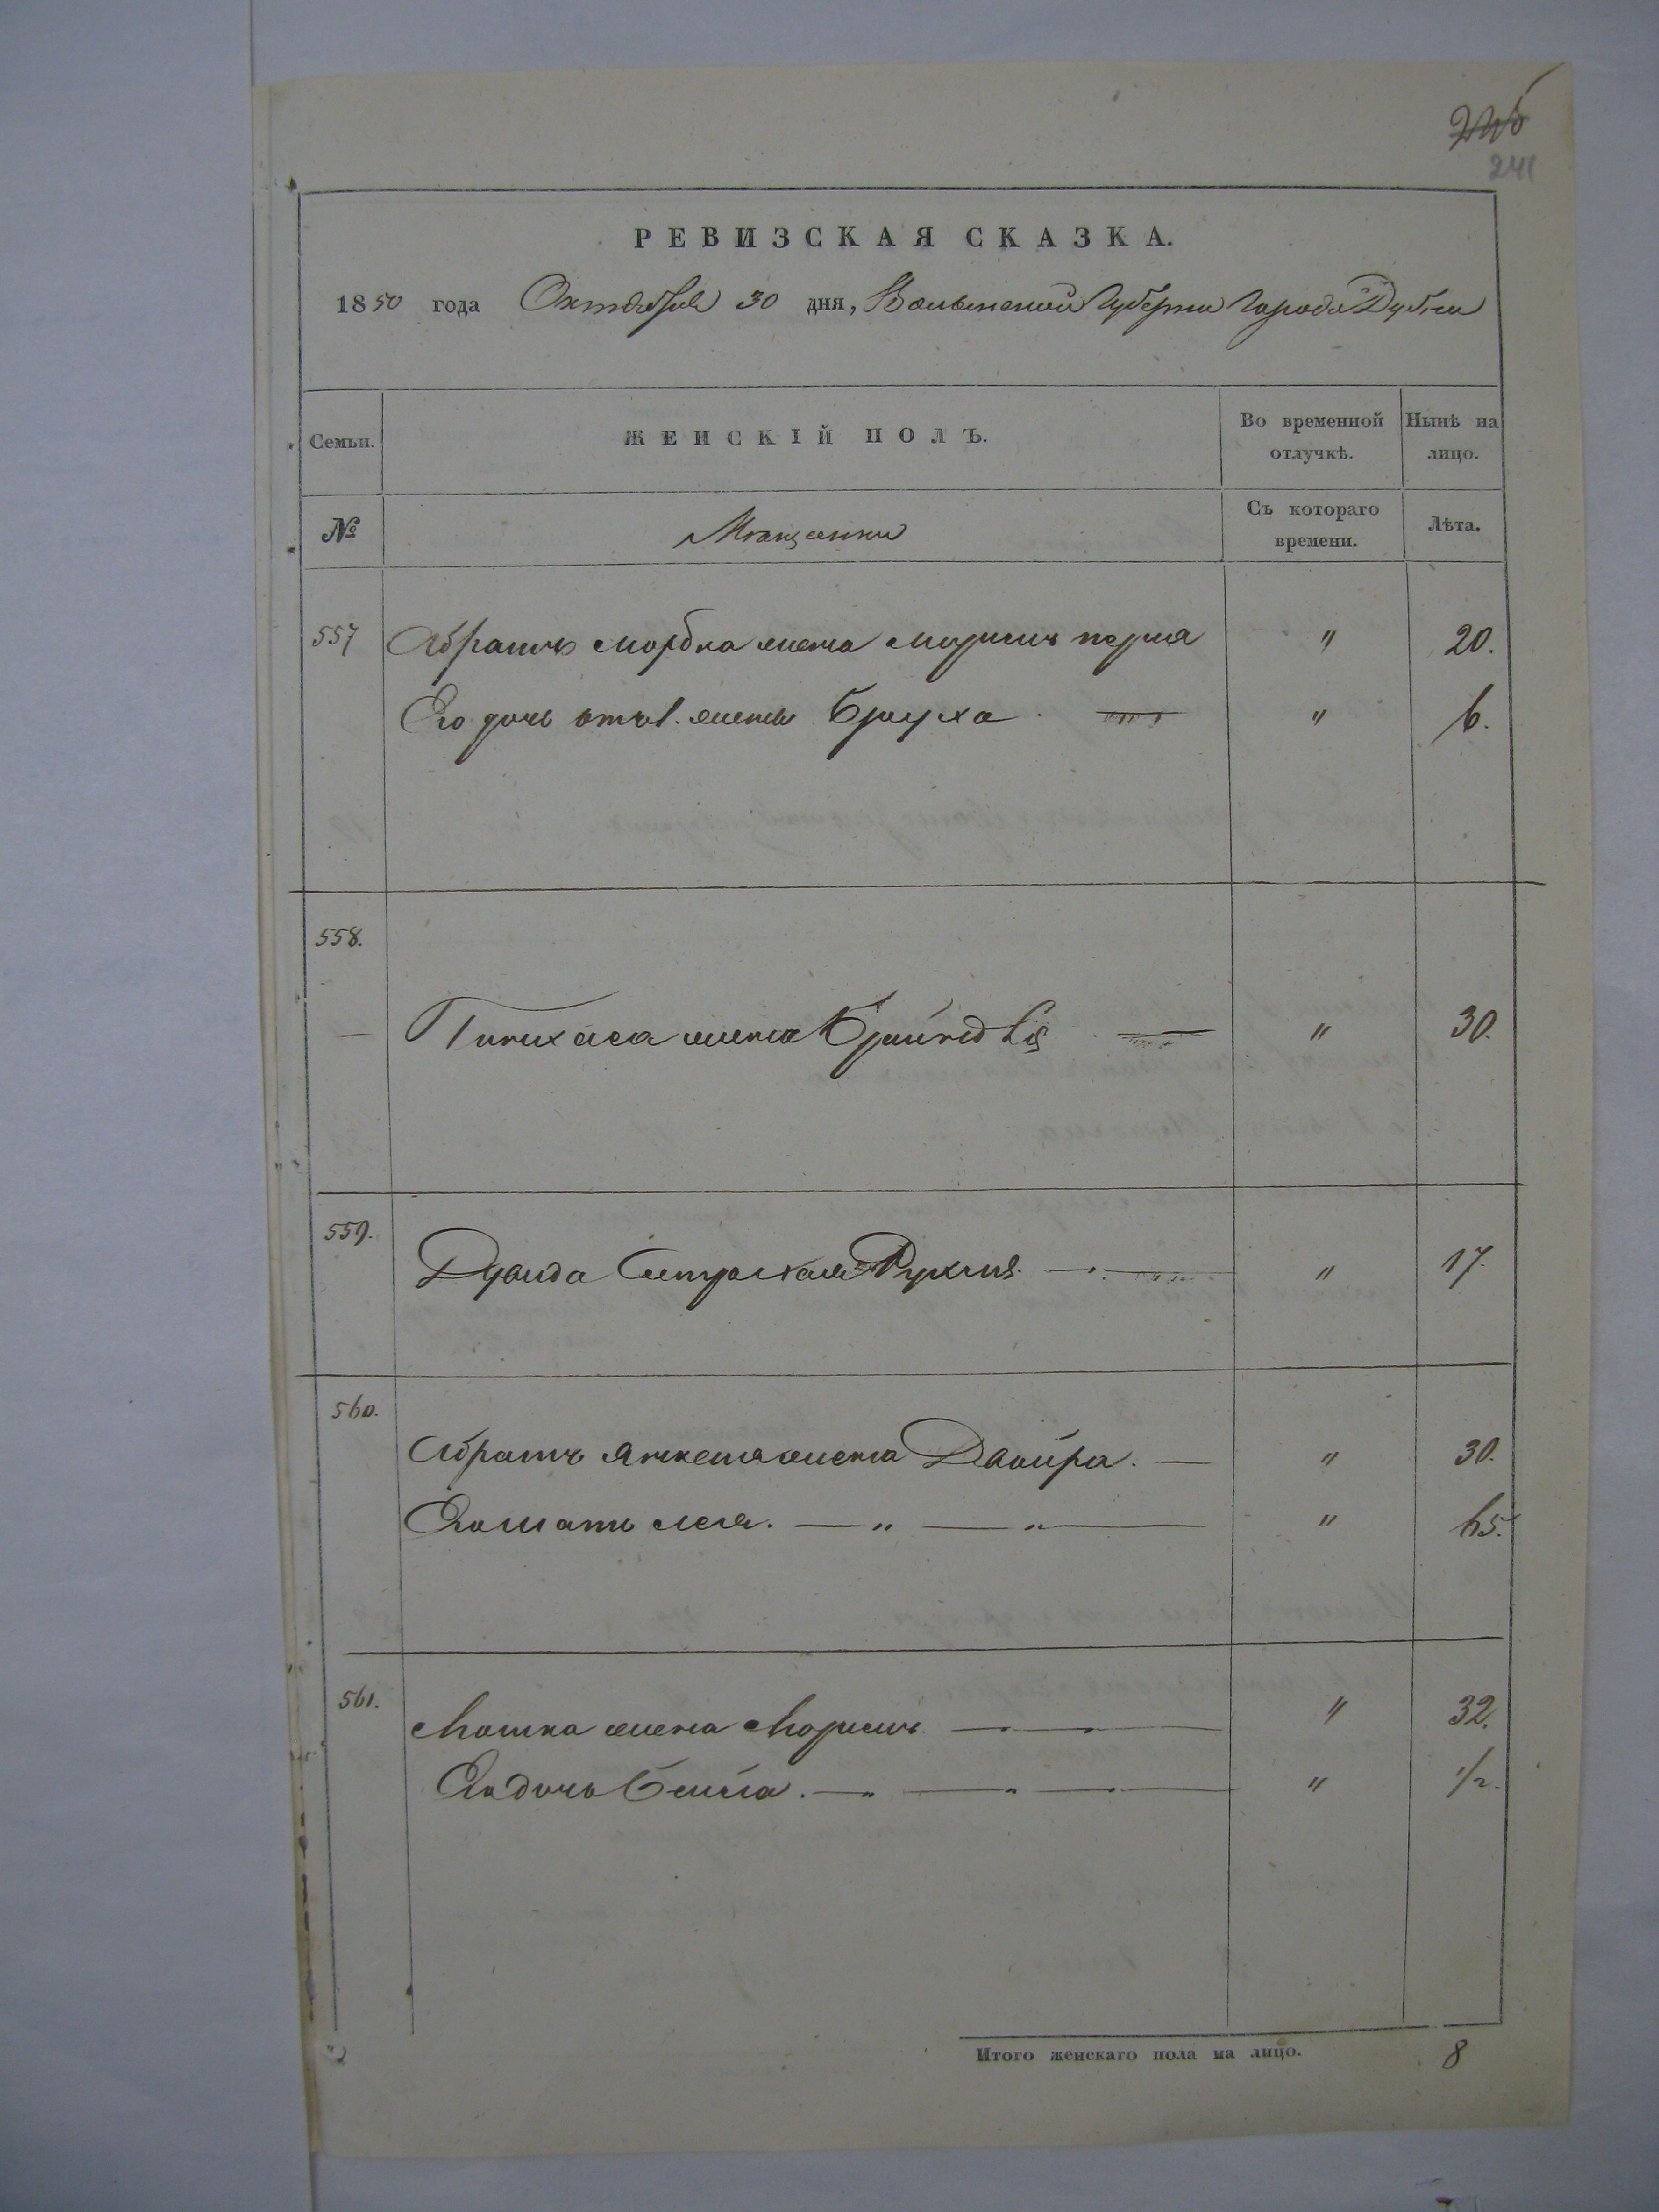 241
РЕВИЗСКАЯ СКАЗКА.
1850 года Октября 30 дня, Волынской Губернии Города Дубна
Семьи. ЖЕНСКІЙ ПОЛЪ. Во временной отлучкѣ. Нынѣ на лицо.
№ Мѣщанки Съ котораго времени. Лѣта.
557 Абрамъ Мордка жена Маріимъ перля " 20.
Его дочь отъ 1. жены Бруха " 6.
558.
Пинхаса жена Брайнд " 30.
559. Дувида Сестра Рухля " 17.
560.
Абрамъ Янкеля жена Двойра. " 30.
Его мать Лея. " " " 65.
561. Мошка жена Маріимъ " 32.
Его дочь Бейла. " 1/2.
Итого женскаго пола на лицо. 8